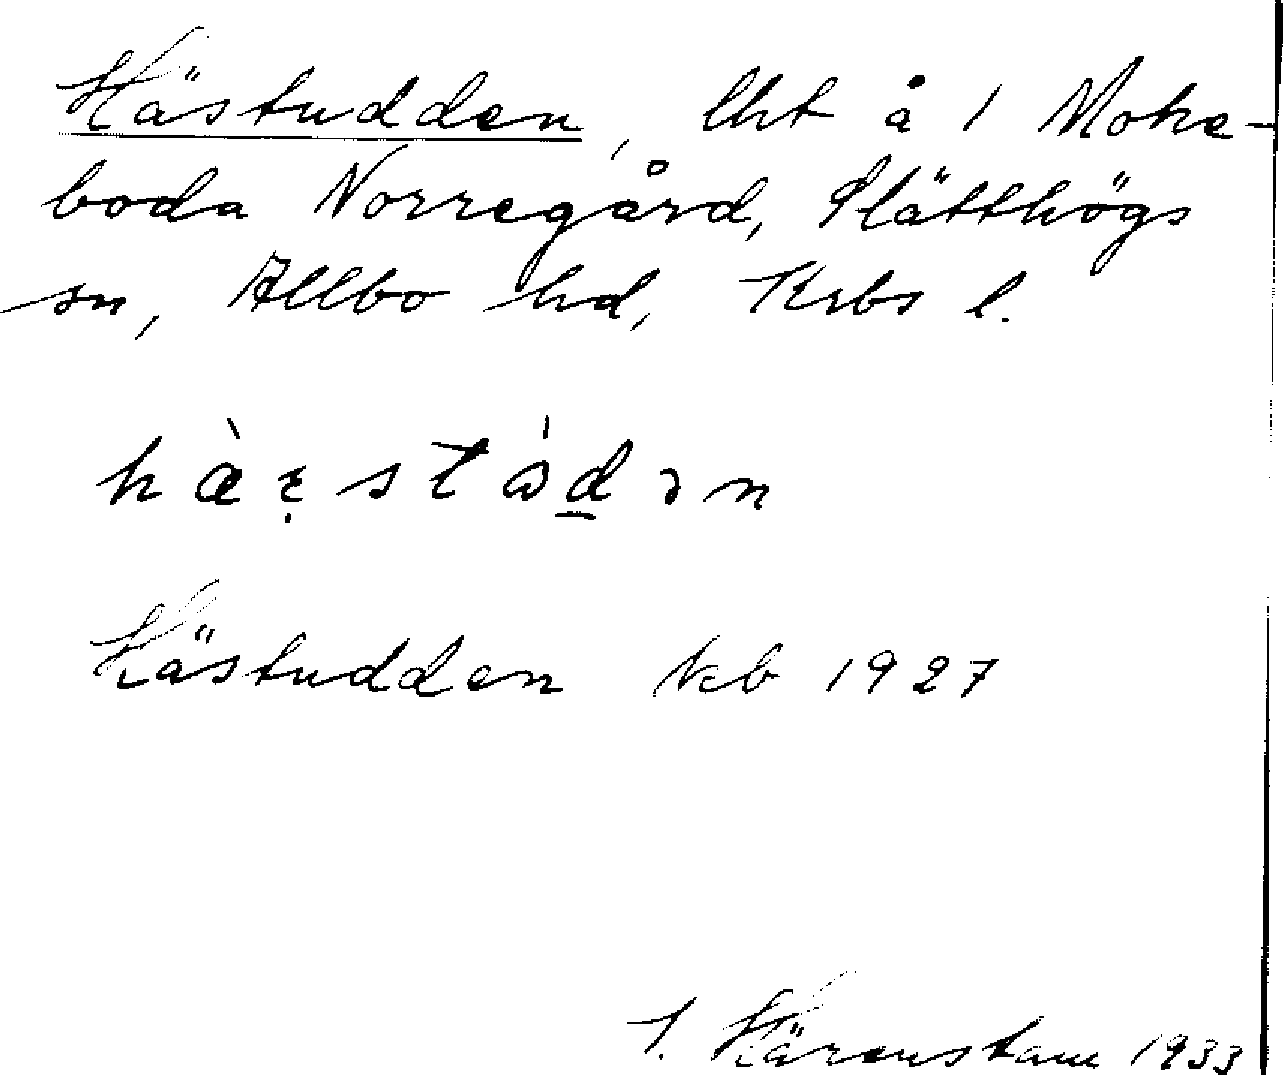 Hästudden, lht å 1 Moke-
boda Norregård, Slätthögs
sn, Allbo hd, Krbs l.
Hästudden kb 1927
J. Härenstam 1933